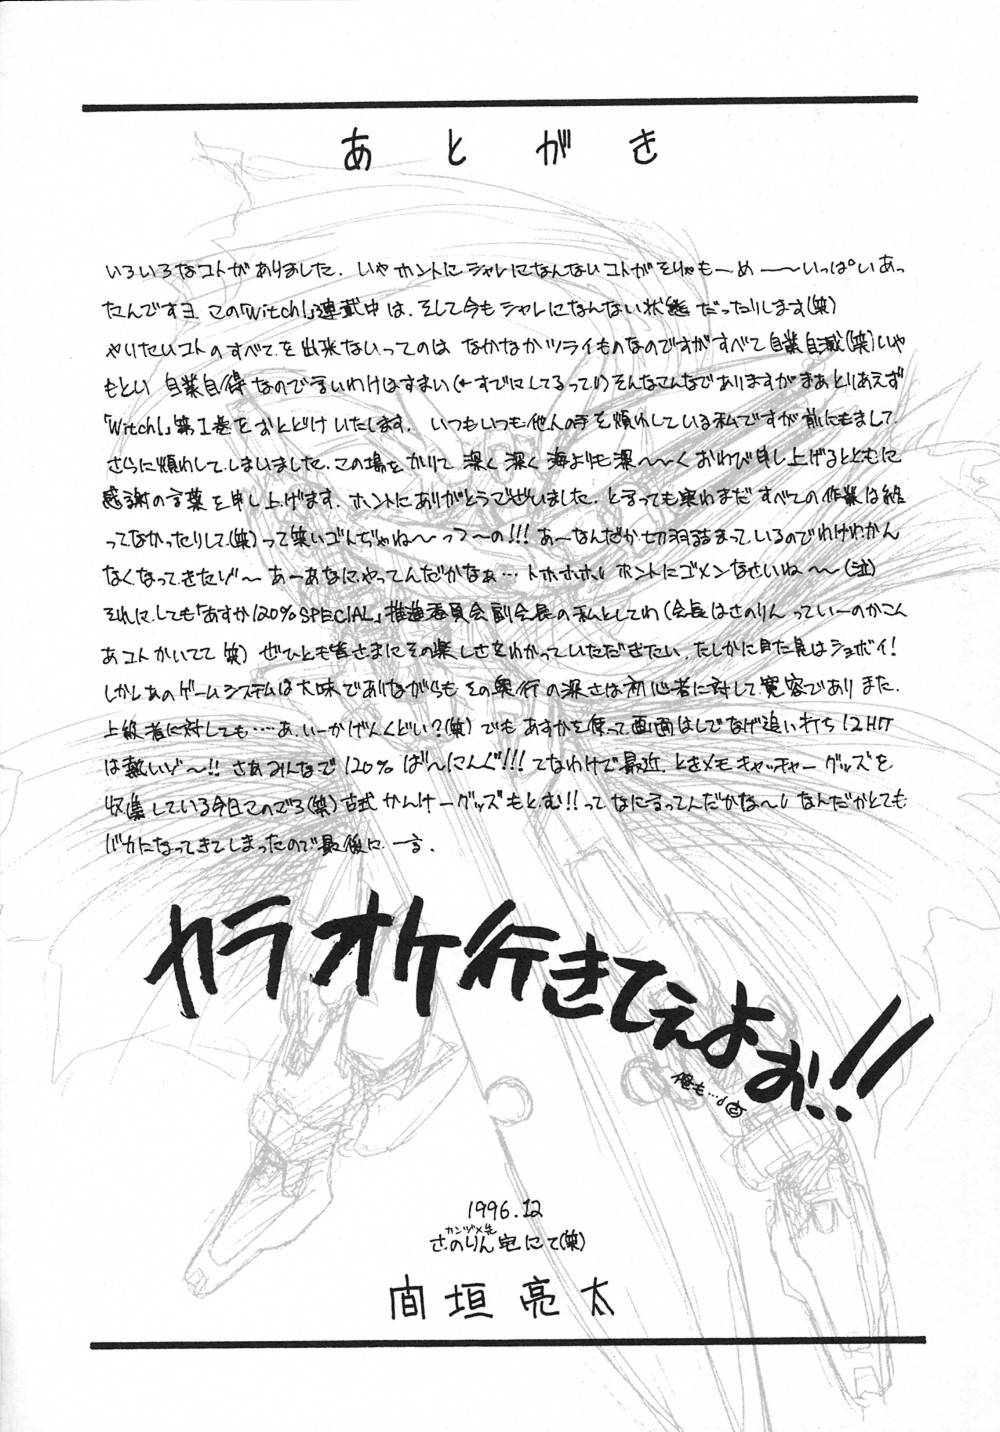 あとがき
いろいろなコトがありました。いやホントにシャレになんないコトがそりゃもーめ〜〜いっぱいあっ
たんですヨ この「Witch!」連載中は、そして今もシャレになんない状態だったりします(笑)
やりたいコトのすべてを出来ないってのは なかなかツライものなのですがすべて自業自滅(笑)いや
もとい 自業自得なので言いわけはすまい(←すでにしてるって!)そんなこんなでありますがまあとりあえず
「Witch!」第1巻をおとどけいたします。 いつもいつも他人の手を煩わしている私ですが前にもまして
さらに煩わしてしまいました。この場をかりて 深く深く海よりも深〜〜く おわび申し上げるとともに
感謝の言葉を申し上げます。ホントにありがとうございました。と言っても実わまだ すべての作業は終
ってなかったりして(笑)って笑いゴトぢゃね〜って〜の!!! あーなんだか切羽詰まっているのでわけわかん
なくなってきたゾ〜 あーあなにやってんだかなぁ… トホホホ ホントにゴメンなさいね〜(泣)
それにしても「あすか120%SPECIAL」推進委員会副会長の私としてわ(会長はさのりん っていーのかこん
なコトかいてて 笑) ぜひとも皆さまにその楽しさをわかっていただきたい。たしかに見た目はショボイ!
しかしあのゲームシステムは大味でありながらも その奥行の深さは初心者に対して寛容であり また、
上級者に対しても……あ、いーかげんくどい?(笑) でも あすかを使って画面はしでなげ追い打ち12HIT
は熱いゾ〜!! さあみんなで 120% ばーにんぐ!!! てなわけで最近、ときメモ キャッチャー グッズを
収集している今日このごろ(笑) 古式 かんけーグッズもとむ!!って なに言ってんだかな〜 なんだかとても
バカになってきてしまったので最後に 一言。
カラオケ行きてぇよぉ!!
俺も…
1996.12
カンヅメ先
さのりん宅にて(笑)
間垣亮太